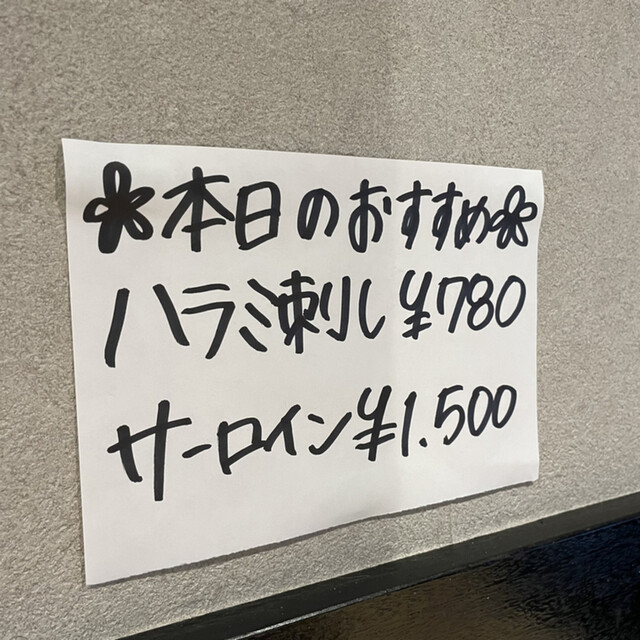 本日のおすすめ
ハラミ刺し ¥780
サーロイン ¥1.500